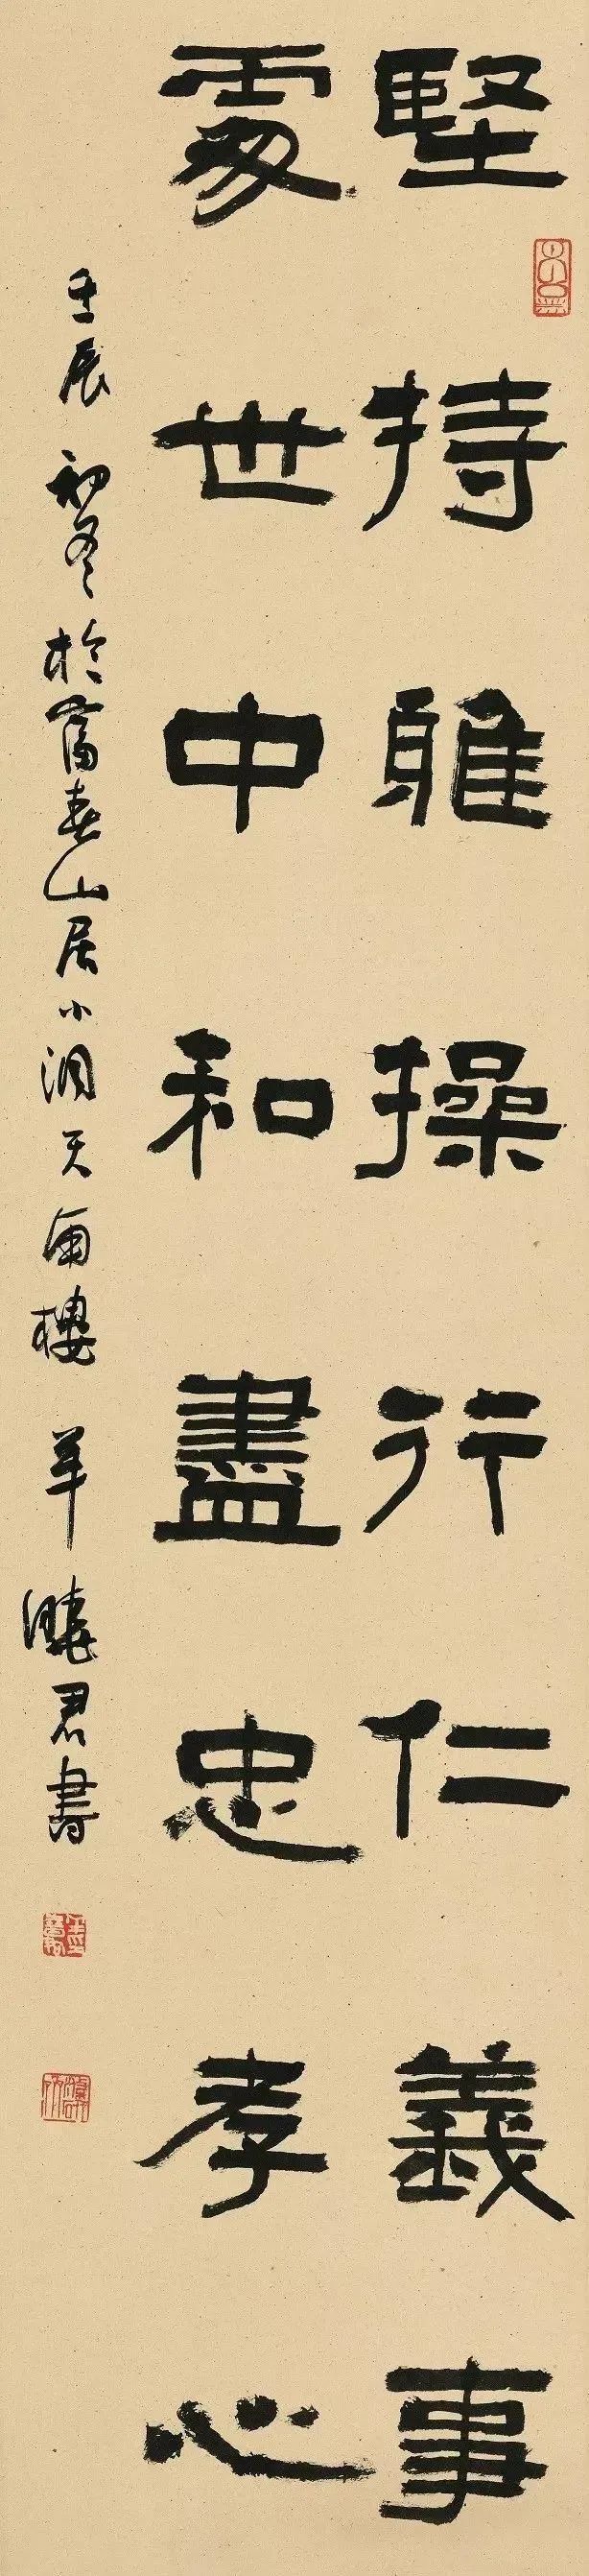 堅持雅操行仁義事
處世中和盡忠孝心
壬辰初冬於富春山居小洞天樓羊曉君書